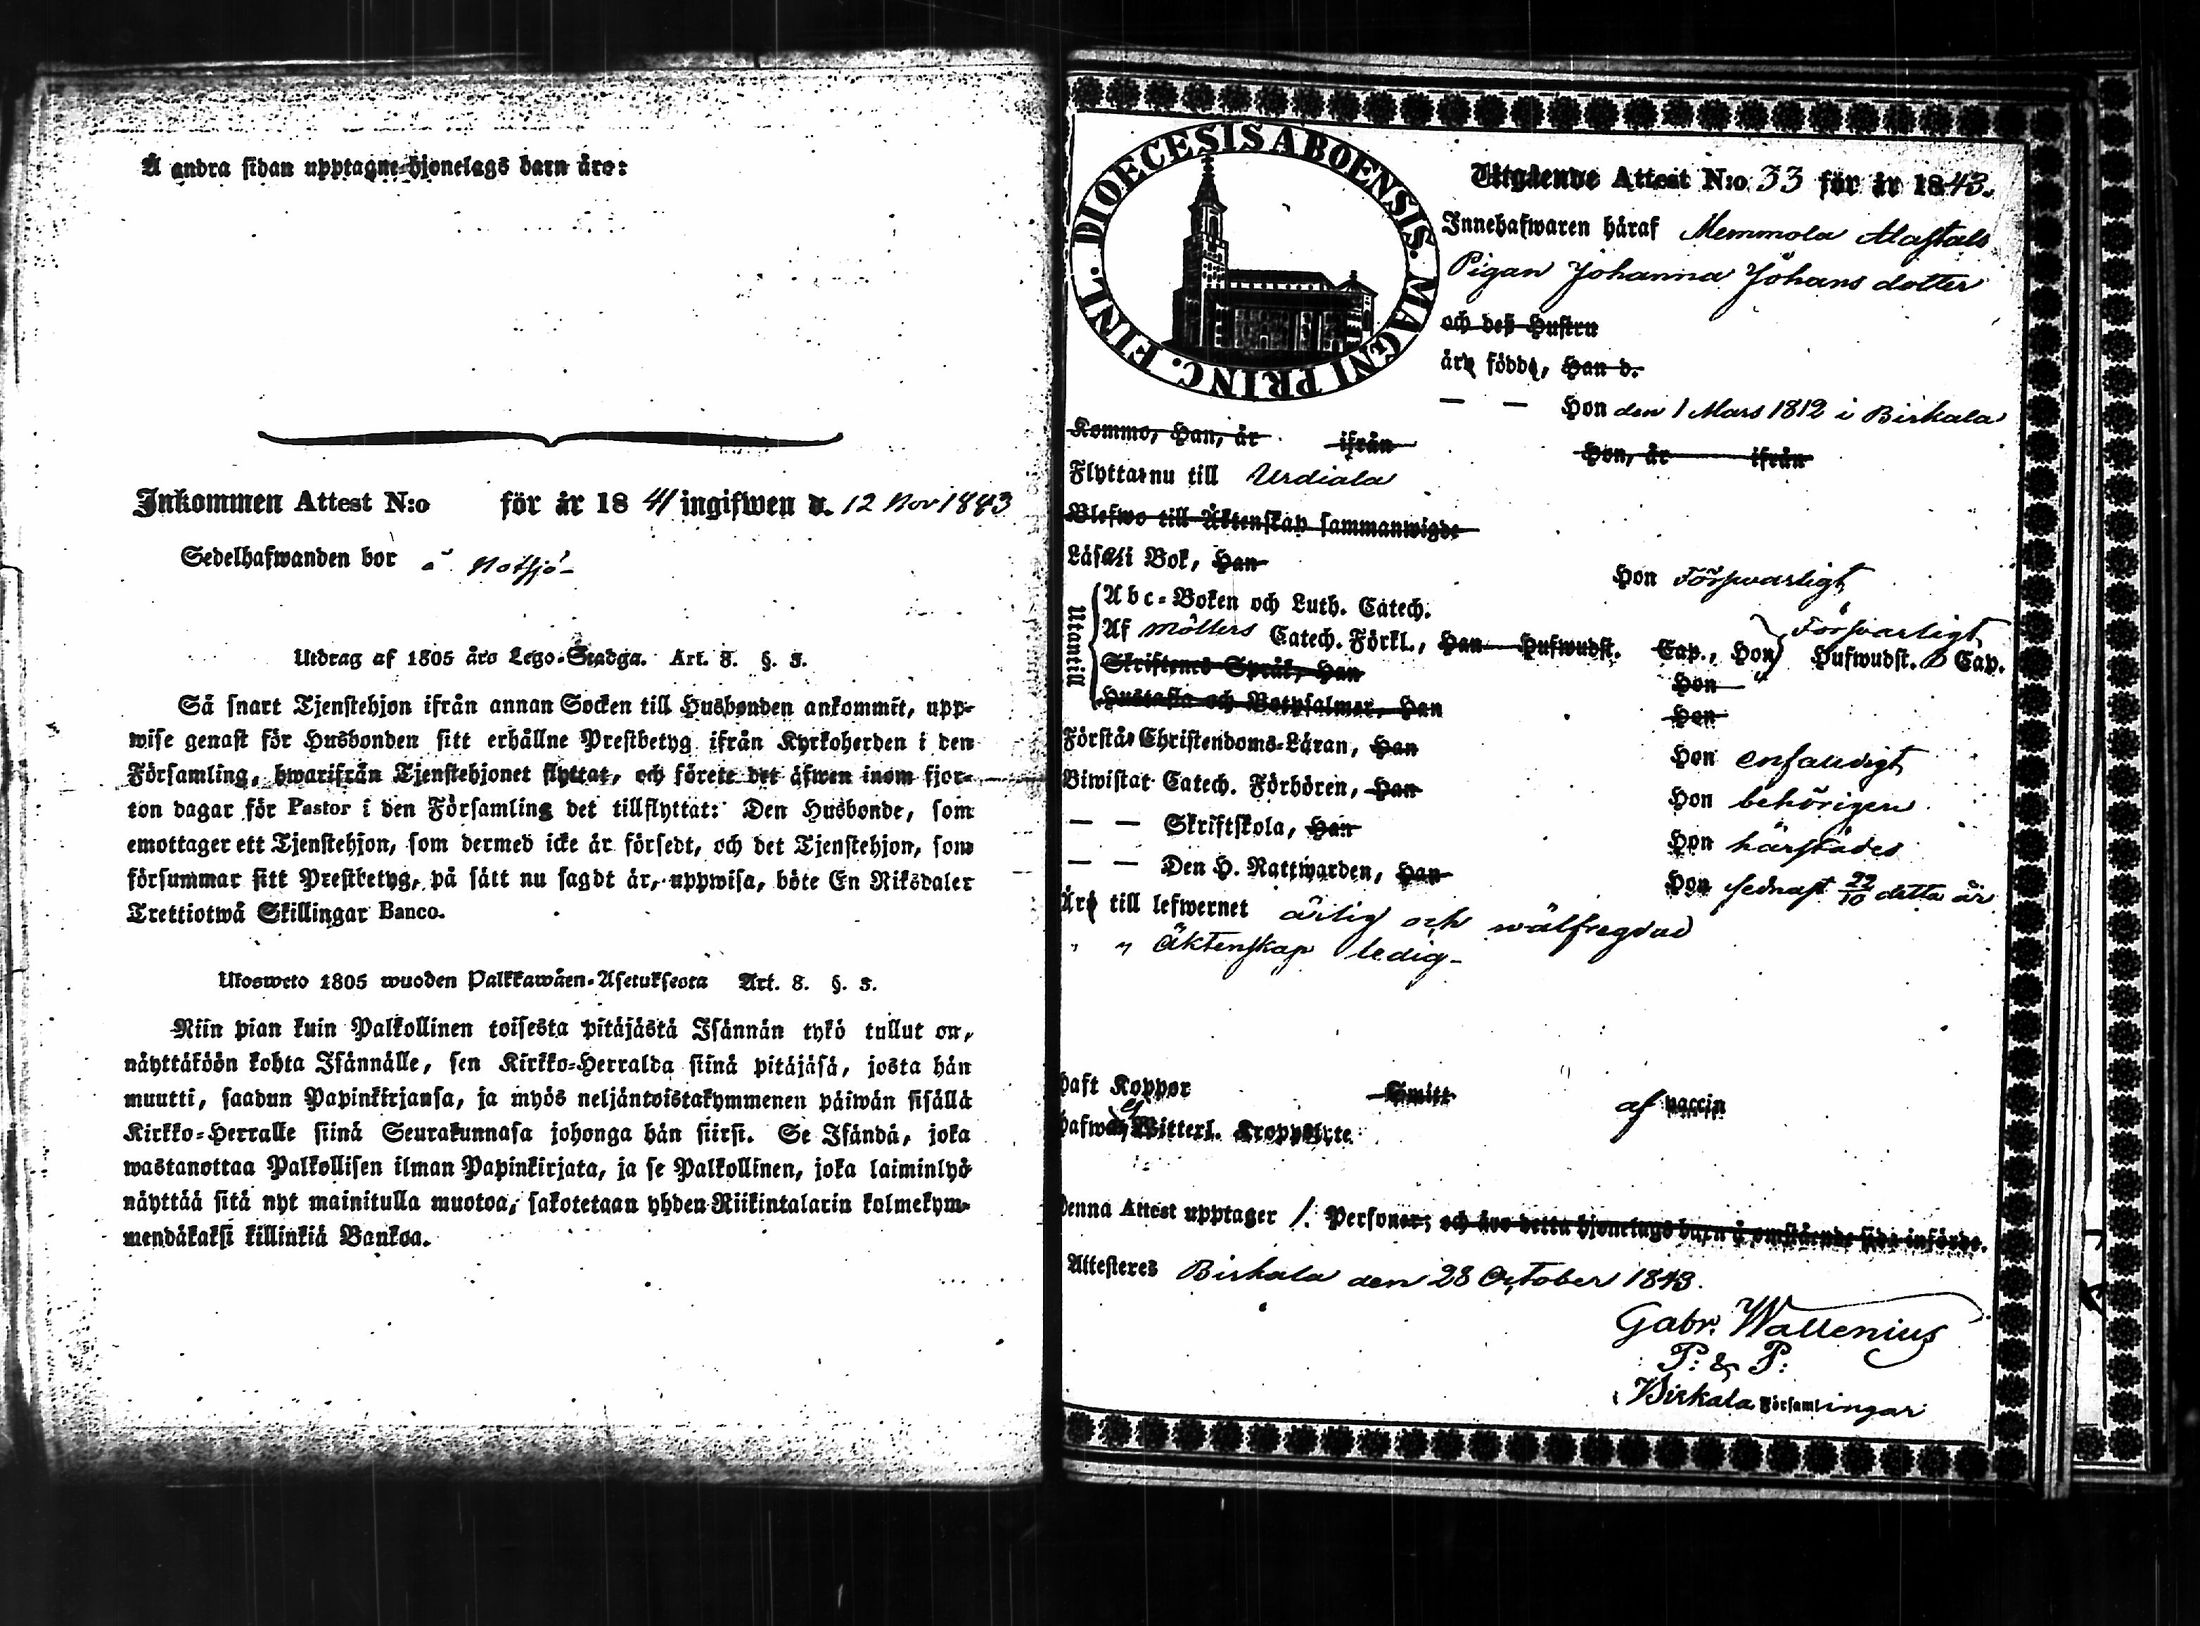 Å andra sidan upptagne hjonelags barn äro:
Inkommen Attest N:o för år 18 41 ingifwen d. 12 Nov 1843
Sedelhafwanden bor å Notsjö
Utdrag af 1805 års Lego-Stadga. Art. 8. §. 3.
Så snart Tjenstehjon ifrån annan Socken till Husbonden ankommit, upp-
wise genast för Husbonden sitt erhållne Prestbetyg ifrån Kyrkoherden i den
Församling, hwarifrån Tjenstehjonet flyttat, och förete det äfwen inom fjor-
ton dagar för Pastor i den Församling det tillflyttat: Den Husbonde, som
emottager ett Tjenstehjon, som dermed icke är försedt, och det Tjenstehjon, som
försummar sitt Prestbetyg, på sätt nu sagdt är, uppwisa, böte En Riksdaler
Trettiotwå Skillingar Banco.
Ulosweto 1805 wuoden Palkkawäen-Asetuksesta Art. 8. §. 3.
Niin pian kuin Palkollinen toisesta pitäjästä Isännän tykö tullut on,
näyttäköön kohta Isännälle, sen Kirkko-Herralda siinä pitäjäsä, josta hän
muutti, saadun Papinkirjansa, ja myös neljäntoistakymmenen päiwän sisällä
Kirkko-Herralle siinä Seurakunnasa johonga hän siirsi. Se Isändä, joka
wastanottaa Palkollisen ilman Papinkirjata, ja se Palkollinen, joka laiminlyö
näyttää sitä nyt mainitulla muotoa, sakotetaan yhden Riikintalarin kolmekym-
mendäkaksi killinkiä Bankoa.
FINL. DIOECESIS ABOENSIS. MAGNI PRINC.
Utgående Attest N:o 33 för år 1843.
Innehafwaren häraf Memmola Alastals
Pigan Johanna Johans dotter
och deß Hustru
äro födde, Han d.
— — Hon den 1 Mars 1812 i Birkala
Kommo, Han, år ifrån Hon, år ifrån
Flyttar nu till Urdiala
Blefwo till Äktenskap sammanwigde
Läser i Bok, Han Hon Försvarligt
Utantill
Abc-Boken och Luth. Catech. Försvarligt
Af Möllers Catech. Förkl., Han Hufwudst. Cap., Hon Hufwudst. Cap.
Skriftenes Språk, Han Hon
Hustafla och Botpsalmer, Han Hon
Förstår Christendoms-Läran, Han Hon enfaldigt
Biwistat Catech. Förhören, Han Hon behörigen
— — Skriftskola, Han Hon härstädes
— — Den H. Nattwarden, Han Hon sednast 22/10 detta år
Äro till lefwernet ärlig och wälfregdad
" " Äktenskap ledig
Haft Koppor Smitt af vaccin
Hafwa ej Witterl. Kroppslyte
Denna Attest upptager 1. Personer; och äro detta hjonelags barn å omstående sida införde.
Attesteres Birkala den 28 October 1843.
Gabr. Wallenius
P: & P:
i Birkala Församlingar